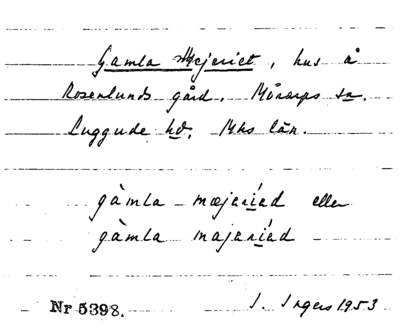 Gamla Mejeriet, hus å
Rosenlunds gård, Mörarps sn.
Luggude hd, Mhs län.
gàmla mæjeríed eller
gàmla majeríed
Nr 5398. I. Ingers 1953